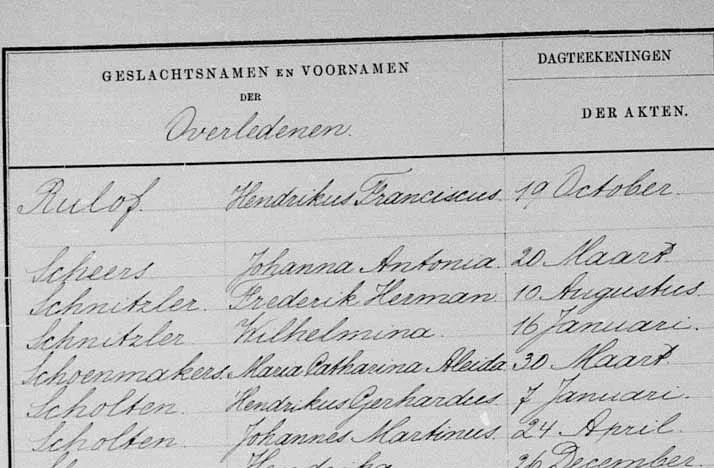 GESLACHTSNAMEN EN VOORNAMEN
DER
Overledenen.
DAGTEEKENINGEN
DER AKTEN.
Rulof. Hendrikus Franciscus. 19 October.
Scheers Johanna Antonia. 20 Maart
Schnitzler. Frederik Herman 10 Augustus.
Schnitzler Wilhelmina. 16 Januari.
Schoenmakers. Maria Catharina Aleida 30 Maart
Scholten. Hendrikus Gerhardus. 7 Januari.
Scholten. Johannes Martinus. 24 April
Hendrika 26 December